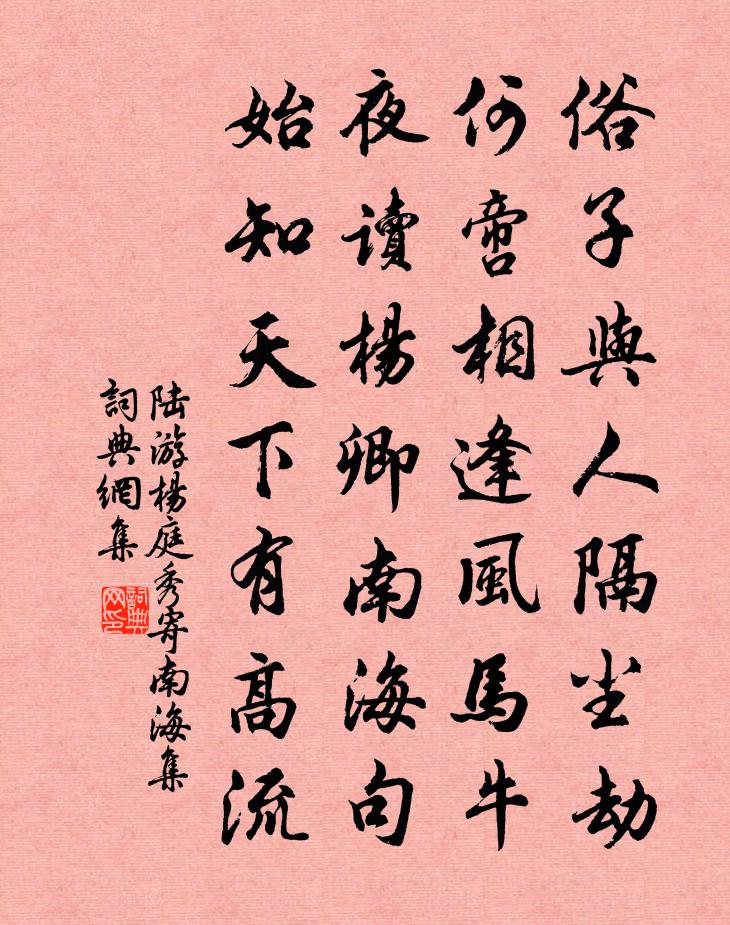 俗子與人隔尘劫
何啻相逢風馬牛
夜讀楊卿南海句
始知天下有高流
陆游楊庭秀寄南海集
詞典網集
詞典网印